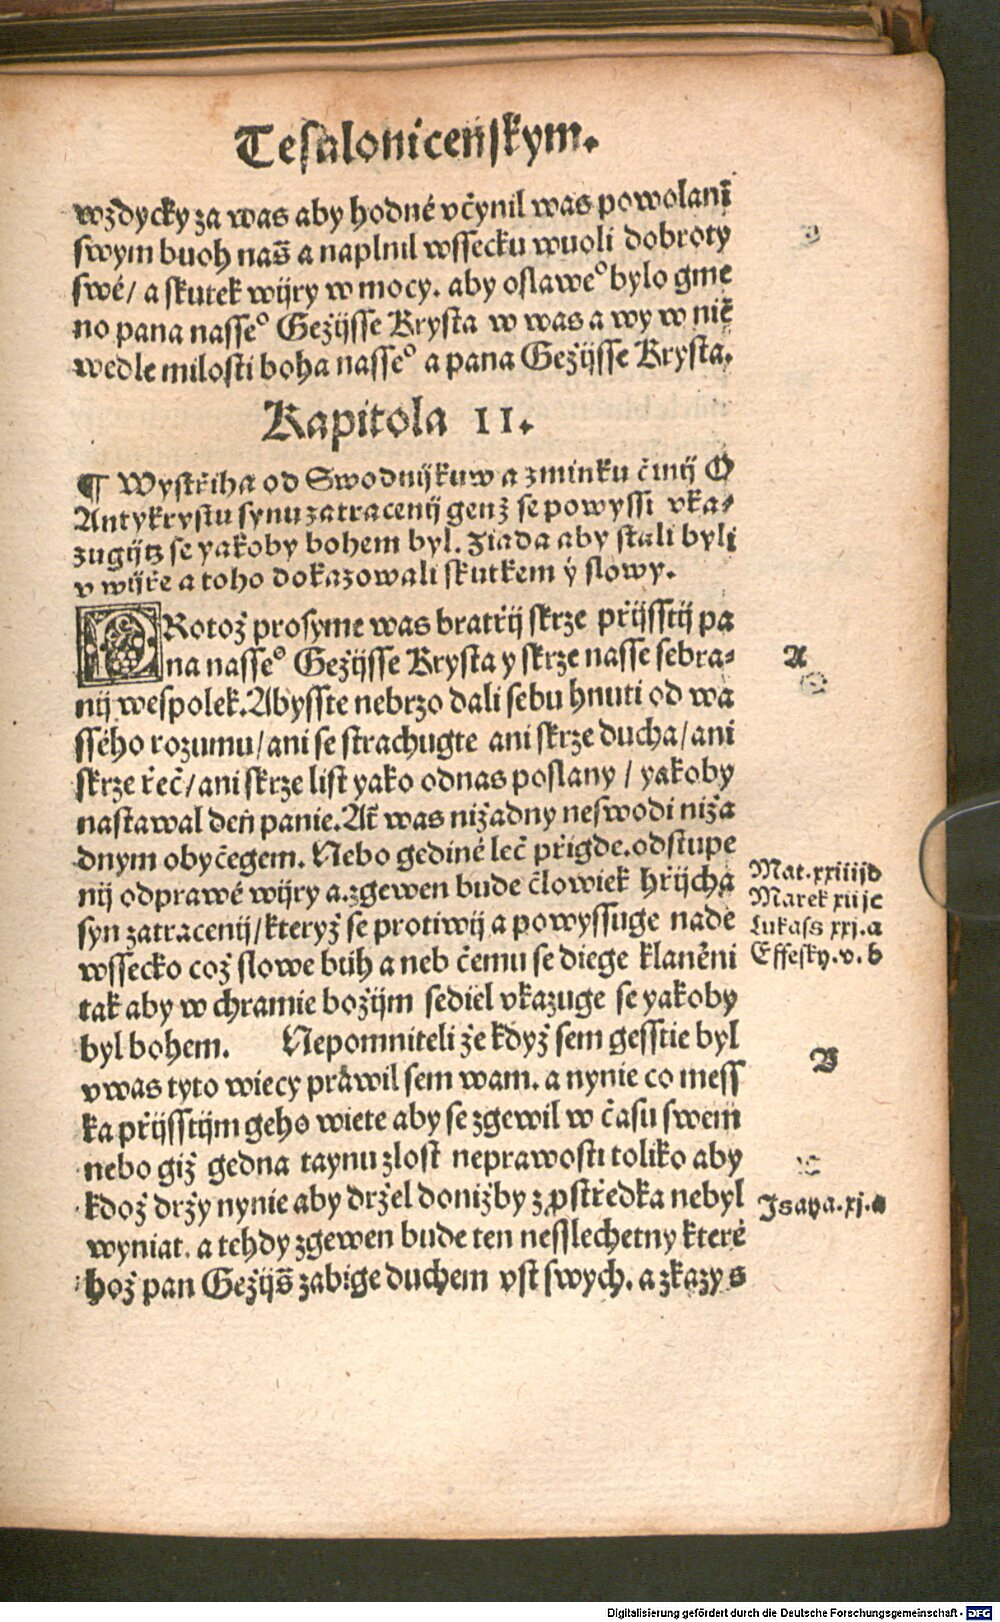 Tesalonicenſkym.
wždycky za was aby hodné včynil was powolanī
ſwym buoh naſs̄ a naplnil wſſecku wuoli dobroty
ſwé/ a ſkutek wijry w mocy. aby oslaweº bylo gme
no pana naſſeº Gežijſſe Kryſta w was a wy w niē
wedle miloſti boha naſſeº a pana Gežijſſe Kryſta.
Kapitola II.
¶ Wyſtřiha od Swodnijkuw a zminku činij O
Antykryſtu ſynu zatracenij genž ſe powyſſi vka⸗
zugijtz ſe yakoby bohem byl. žiada aby ſtali byli
v wijře a toho dokazowali ſkutkem y slowy.
PRotož proſyme was bratřij ſkrze přijſſtij pa
na naſſeº Gežijſſe Kryſta y ſkrze naſſe ſebra⸗
nij weſpolek. Abyſſte nebrzo dali ſebu hnuti od wa
ſſého rozumu/ ani ſe ſtrachugte ani ſkrze ducha/ ani
ſkrze řeč/ ani ſkrze liſt yako odnas poslany / yakoby
naſtawal deň panie. Ať was nižadny neſwodi niža
dnym obyčegem. Nebo gediné leč přigde. odſtupe
nij odprawé wijry a. zgewen bude člowiek hřijcha
ſyn zatracenij/ kteryž ſe protiwij a powyſſuge nade
wſſecko což slowe būh a neb čemu ſe diege klaněni
tak aby w chramie božijm ſediel vkazuge ſe yakoby
byl bohem. Nepomniteli že když ſem geſſtie byl
v was tyto wiecy prāwil ſem wam. a nynie co meſſ
ka přijſſtijm geho wiete aby ſe zgewil w čaſu ſwem
nebo giž gedna taynu zloſt neprawoſti toliko aby
kdož držy nynie aby držel doniżby z ꝓſtředka nebyl
wyniat. a tehdy zgewen bude ten neſſlechetny které
hož pan Gežijs̄ zabige duchem vſt ſwych. a zkazy s
A
Mat. xxiiijd
Marek xiijc
Lukaſs xxj. a
Effeſky. v. b
B
Iſaya. xj. a
Digitalisierung gefördert durch die Deutsche Forschungsgemeinschaft - DFG